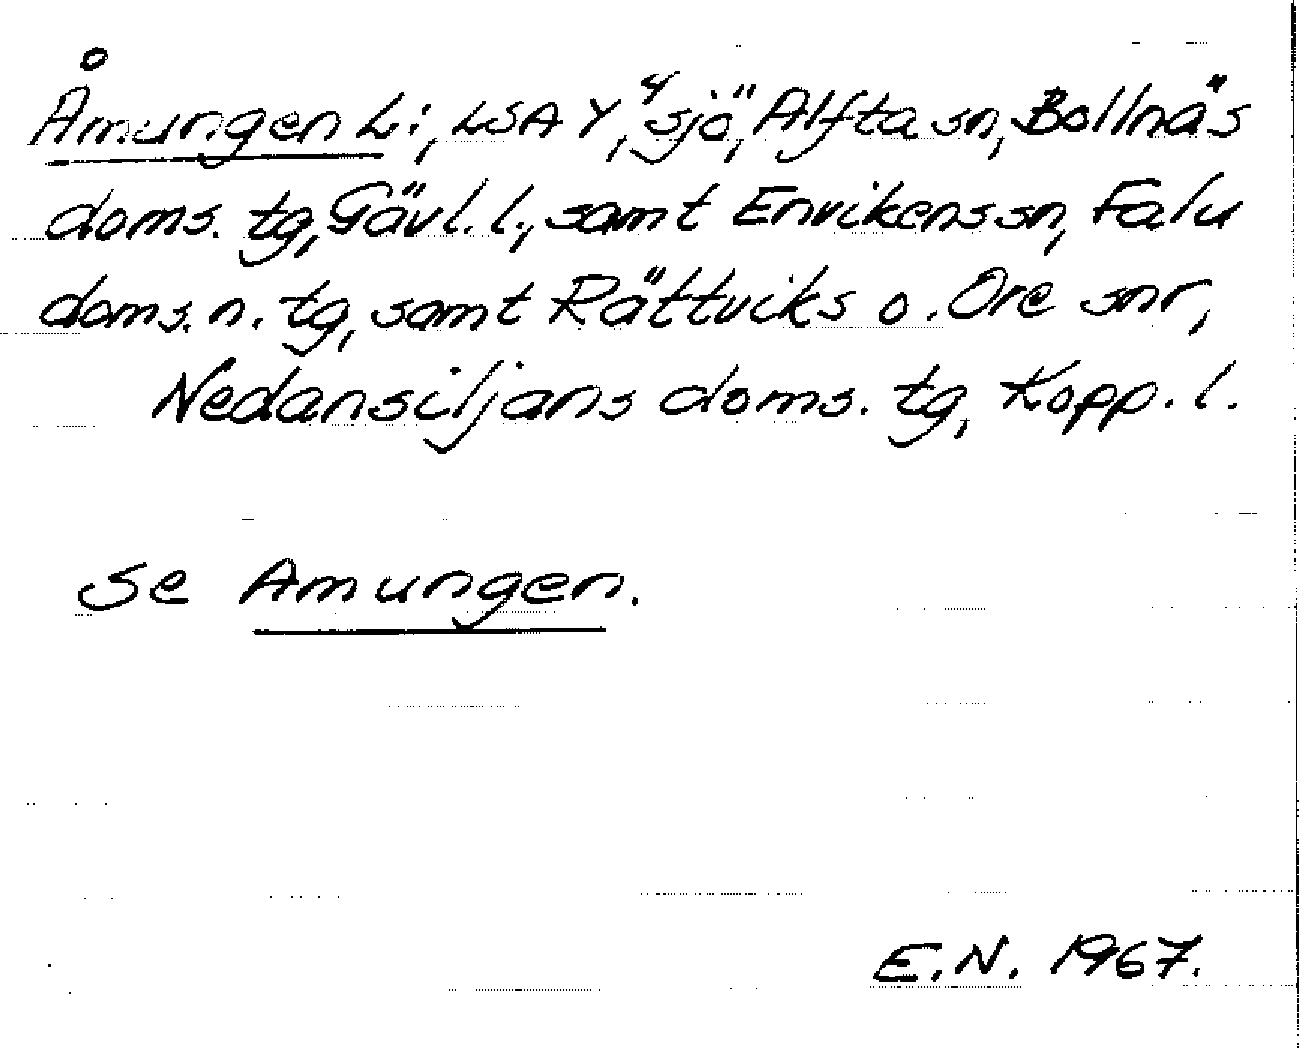 Åmungen L:, LSA Y, "sjö", Alfta sn, Bollnäs
doms. tg, Gävl. l., samt Envikens sn, Falu
doms. n. tg, samt Rättviks o. Ore snr,
Nedansiljans doms. tg, Kopp. l.
se Amungen.
E.N. 1967.